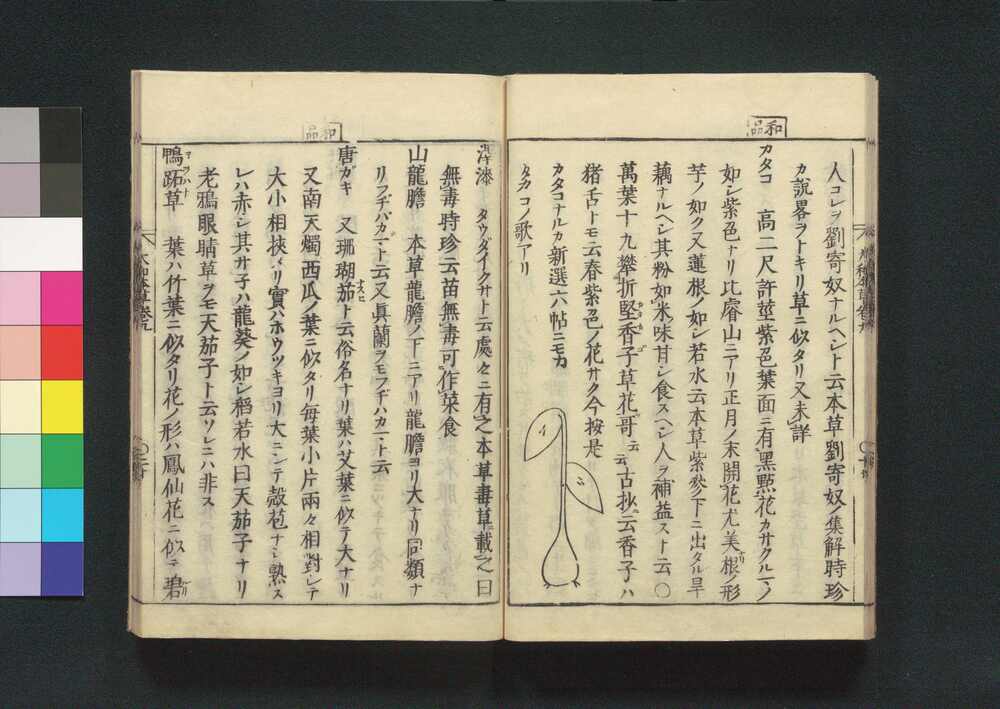 和品
人コレヲ劉寄奴ナルヘシト云本草劉寄奴ノ集解時珍
カ説畧ラトキリ草ニ似タリ又未詳
カタコ 高二尺許莖紫色葉面ニ有黒㸃花カサクルマノ
如シ紫色ナリ比睿山ニアリ正月ノ末開花尤美ナリ根ノ形
芋ノ如ク又蓮根ノ如シ若水云本草紫參下ニ出タル旱
藕ナルヘシ其粉如米味甘シ食スヘシ人ヲ補益スト云〇
萬葉十九攀折堅香子草花哥ニ云古抄ニ云香子ハ
猪舌トモ云春紫色ノ花サク今按是
カタコナルカ新選六帖ニモカ
タカコノ歌アリ
和品
澤漆 タウダイクサト云處々ニ有之本草毒草ニ載之曰
無毒時珍云苗無毒可作菜食
山龍膽 本草龍膽ノ下ニアリ龍膽ヨリ大ナリ同類ナ
リフヂバカマト云又眞蘭ヲモフヂハカマト云
唐ガキ 又珊瑚茄ト云俗名ナリ葉ハ艾葉ニ似テ大ナリ
又南天燭西瓜ノ葉ニ似タリ毎葉小片兩々相對シテ
大小相挾メリ實ハホウツキヨリ大ニシテ殻苞ナシ熟ス
レハ赤シ其サ子ハ龍葵ノ如シ稻若水曰天茄子ナリ
老鴉眼睛草ヲモ天茄子ト云ソレニハ非ス
鴨跖草 葉ハ竹葉ニ似タリ花ノ形ハ鳳仙花ニ似テ碧